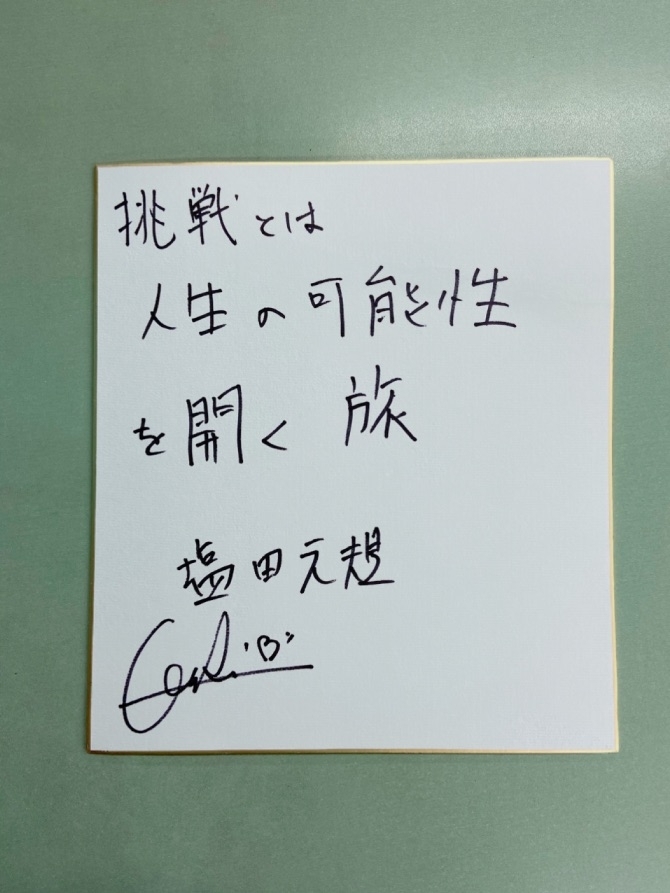 挑戦とは
人生の可能性
を開く 旅
塩田元規